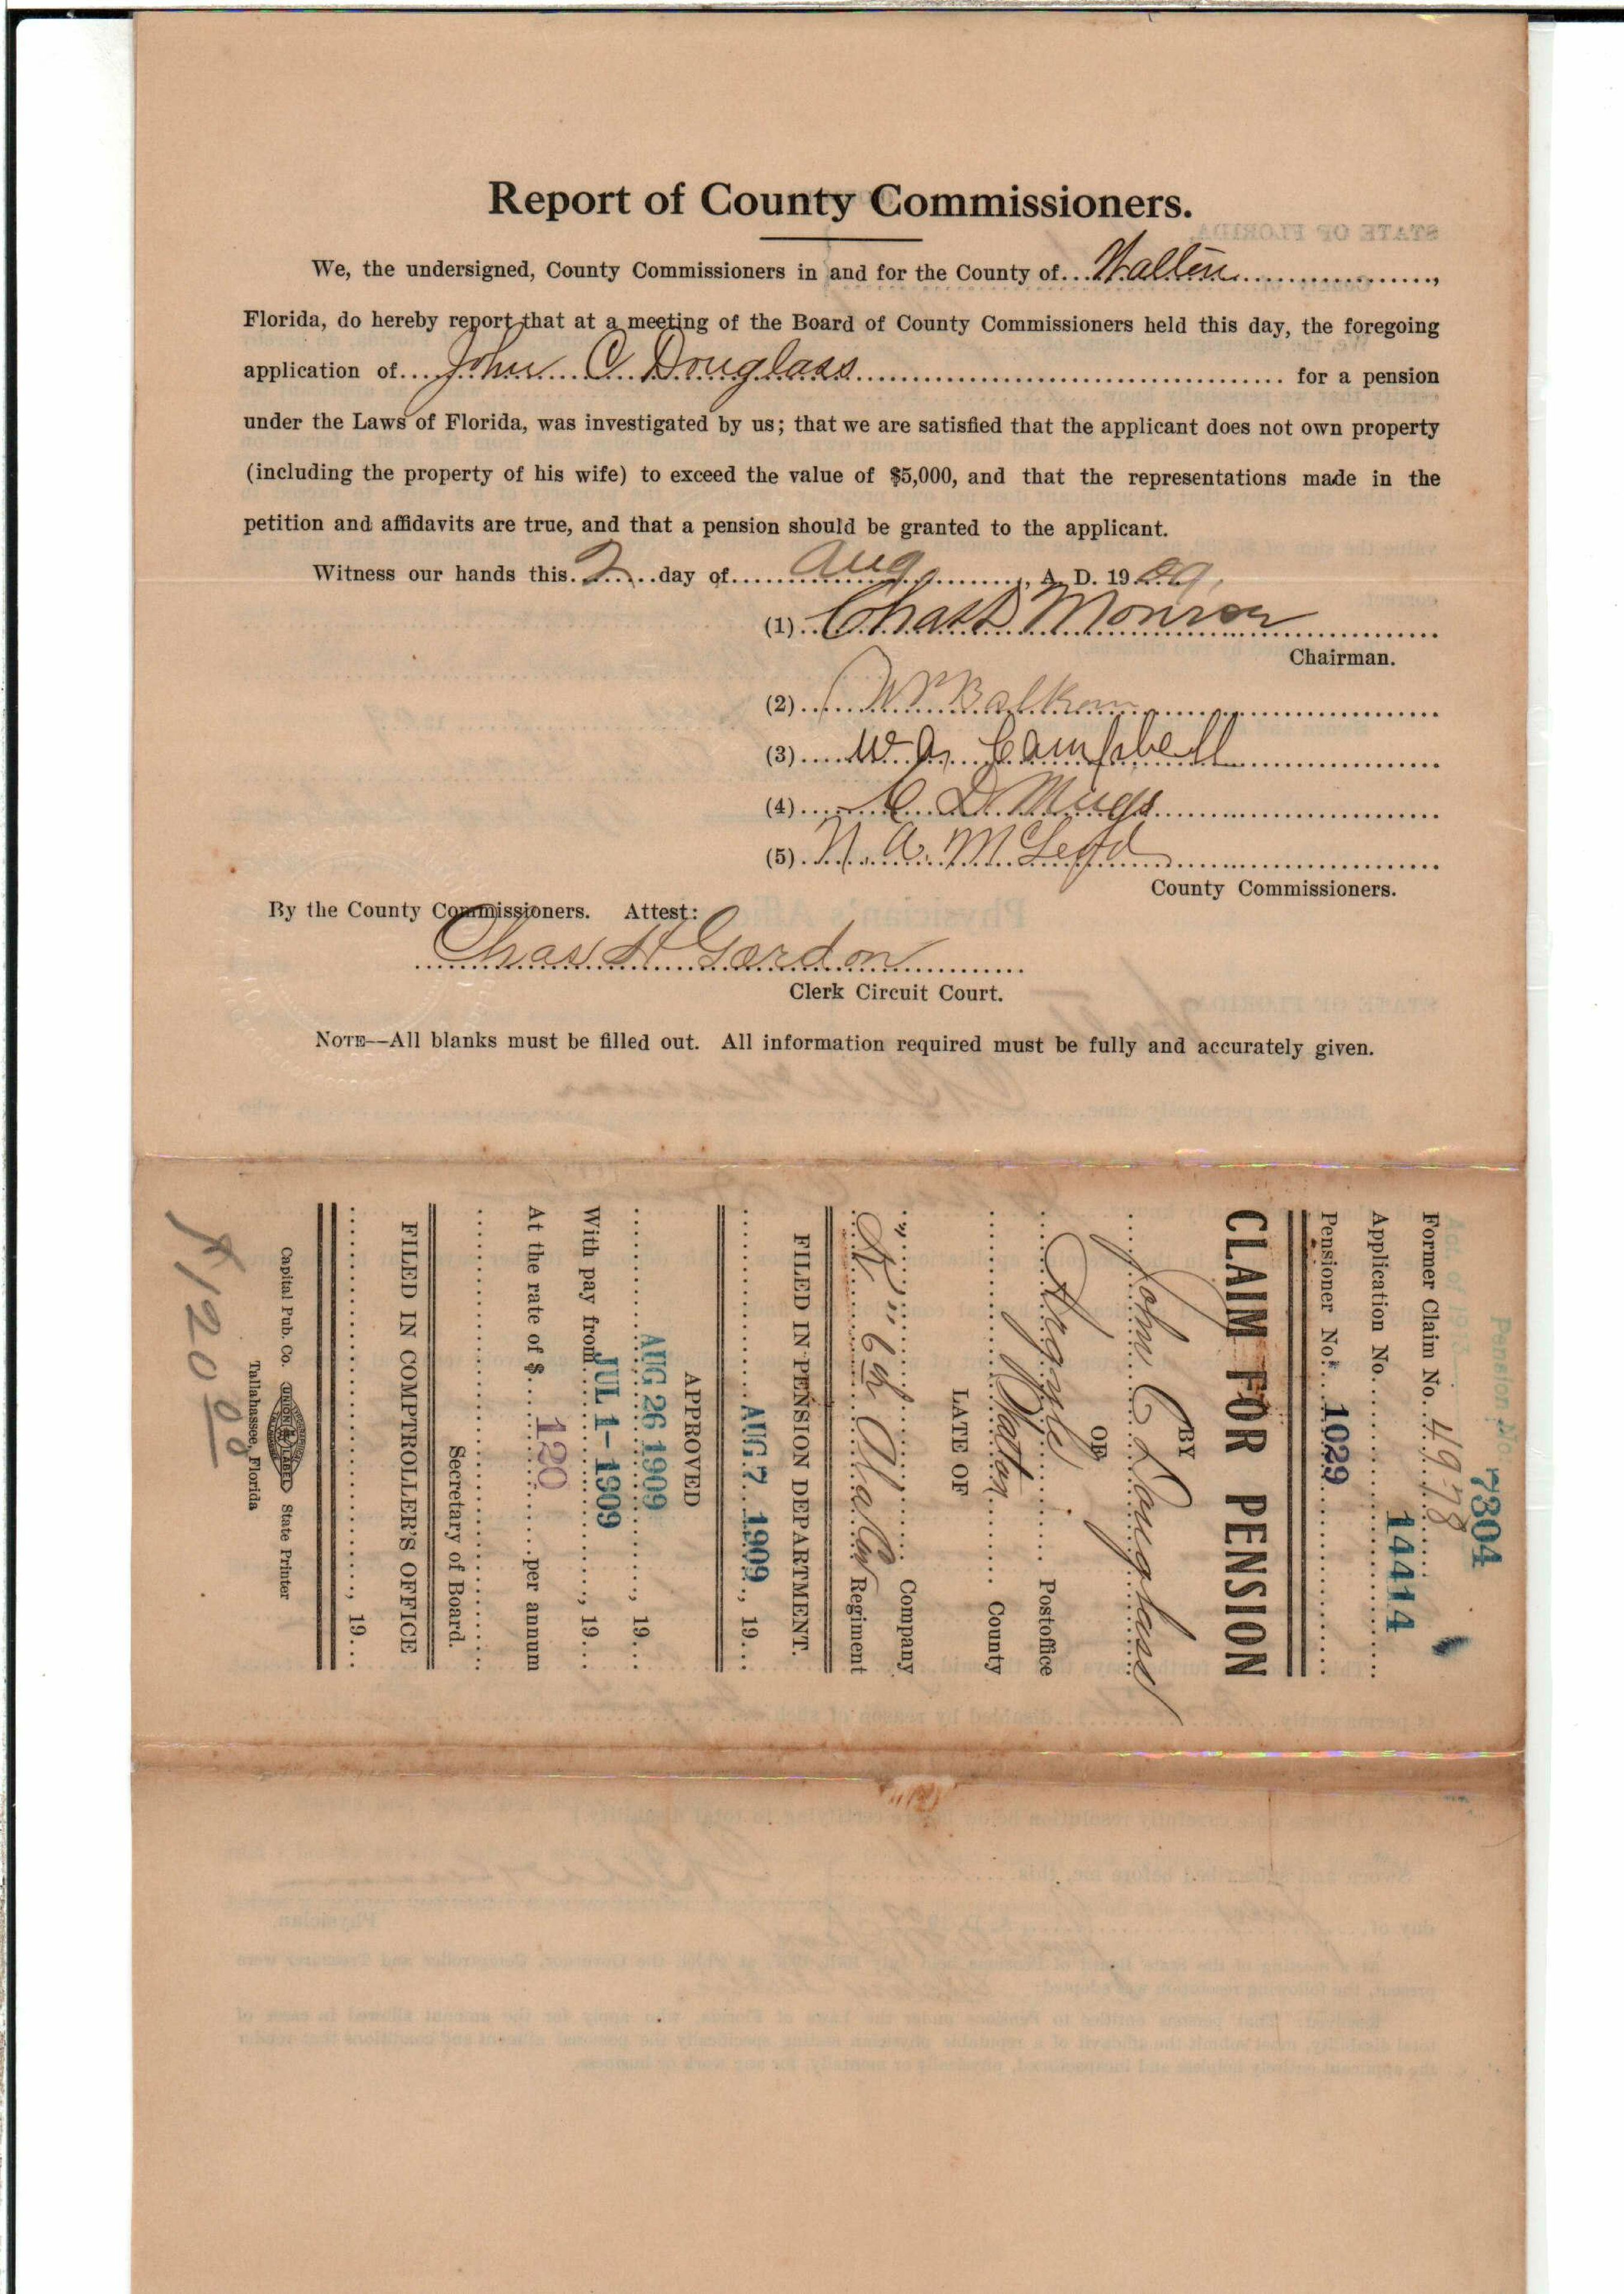 Report of County Commissioners.
We, the undersigned, County Commissioners in and for the County of...Walton...,
Florida, do hereby report that at a meeting of the Board of County Commissioners held this day, the foregoing
application of....John C Douglass.... for a pension
under the Laws of Florida, was investigated by us; that we are satisfied that the applicant does not own property
(including the property of his wife) to exceed the value of $5,000, and that the representations made in the
petition and affidavits are true, and that a pension should be granted to the applicant.
Witness our hands this..2....day of.....Aug......, A. D. 1909.
(1) Chas D Monroe
Chairman.
(2) Balkom
(3) W. A. Campbell
(4) C D
(5) N. A. McLeod
County Commissioners.
By the County Commissioners. Attest:
Chas H Gordon
Clerk Circuit Court.
NOTE--All blanks must be filled out. All information required must be fully and accurately given.
Pension No. 7304
Act. of 1913
Former Claim No. 4978
Application No. 14414
Pensioner No. 1029
CLAIM FOR PENSION
BY
John C Douglass
OF
Argyle Postoffice
Walton County
LATE OF
"K" Company
6th Ala Regiment
FILED IN PENSION DEPARTMENT.
AUG 7 1909, 19...
APPROVED
AUG 26 1909, 19...
With pay from JUL 1- 1909, 19...
At the rate of $ 120 per annum
Secretary of Board.
FILED IN COMPTROLLER'S OFFICE
, 19...
Capital Pub. Co. UNION LABEL State Printer
Tallahassee, Florida
$120 00